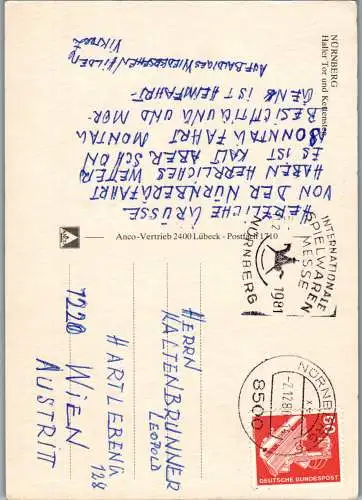 NÜRNBERG
Haller Tor und Kettensteg
HERZLICHE GRÜSSE
VON DER NÜRNBERGFAHRT
HABEN HERRLICHES WETTER
ES IST KALT ABER SCHÖN
SONNTAG FAHRT MONTAG
BESICHTIGUNG UND MOR-
GEN IST HEIMFAHRT-
AUF BALDIGES WIEDERSEHEN HILDE
VIKTOR
Anco-Vertrieb 2400 Lübeck - Postfach 1710
INTERNATIONALE
SPIELWAREN
MESSE
1981
NÜRNBERG
NÜRNBERG
-2.12.80
8500
60
DEUTSCHE BUNDESPOST
HERRN
KALTENBRUNNER
LEOPOLD
HARTLEBENG
128
1220 WIEN
AUSTRITT